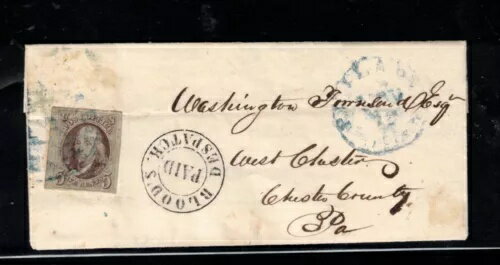 Washington Townsend Esqr
West Chester
Chester County
Pa
D.O. BLOOD'S
DESPATCH.
PAID
5 5